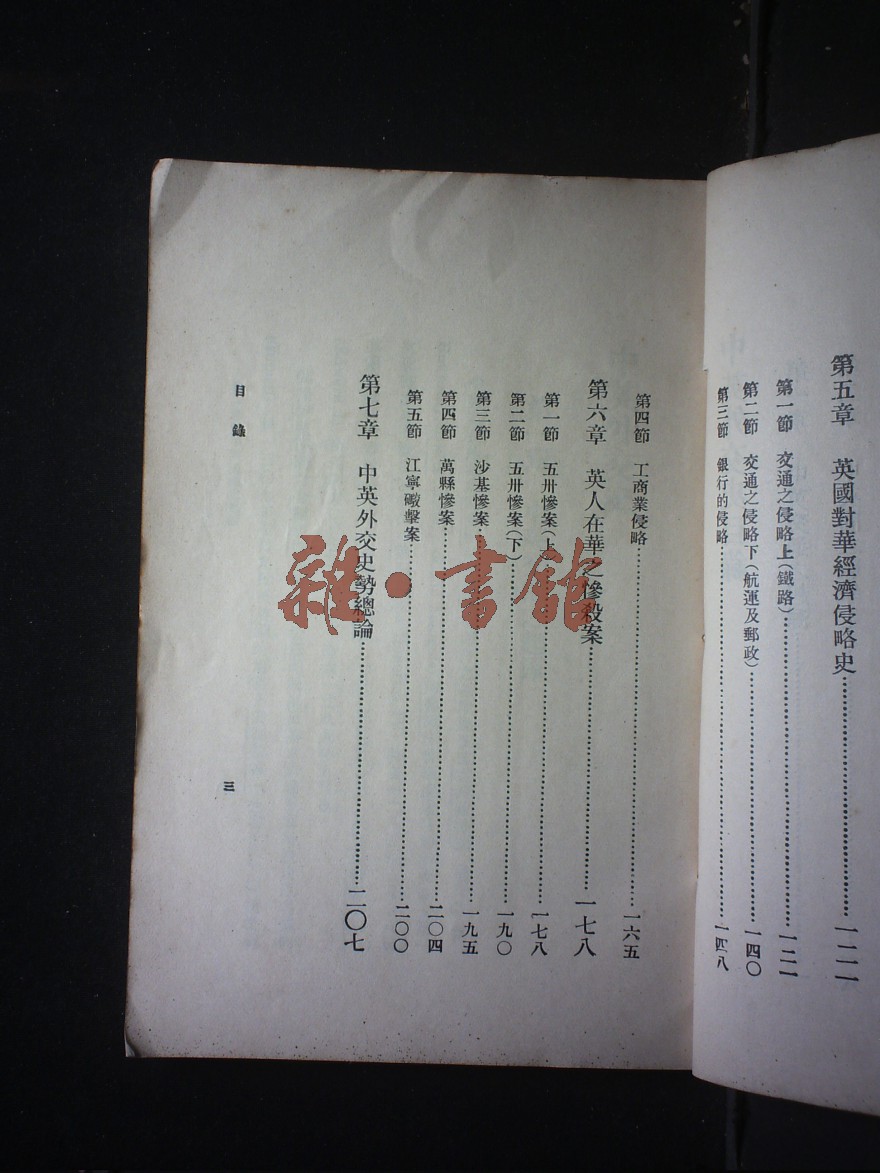 第五章　英國對華經濟侵略史……一二一
第一節　交通之侵略上(鐵路)……一二一
第二節　交通之侵略下(航運及郵政)……一四〇
第三節　銀行的侵略……一四八
第四節　工商業侵略……一六五
第六章　英人在華之慘殺案……一七八
第一節　五卅慘案(上)……一七八
第二節　五卅慘案(下)……一九〇
第三節　沙基慘案……一九五
第四節　萬縣慘案……二〇四
第五節　江寧礮擊案……二〇〇
第七章　中英外交史勢總論……二〇七
目錄
三
雜·書館